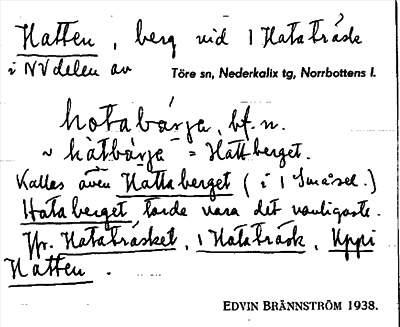 Hatten, berg vid 1 Hataträsk
i NV delen av Töre sn, Nederkalix tg, Norrbottens l.
hotabárja, bf. n.
~ hàtbärja = Hattberget.
Kallas även Hattaberget (i 1 Småsel.)
Hataberget torde vara det vanligaste.
Jfr. Hataträsket, 1 Hataträsk, Uppi
Hatten.
EDVIN BRÄNNSTRÖM 1938.